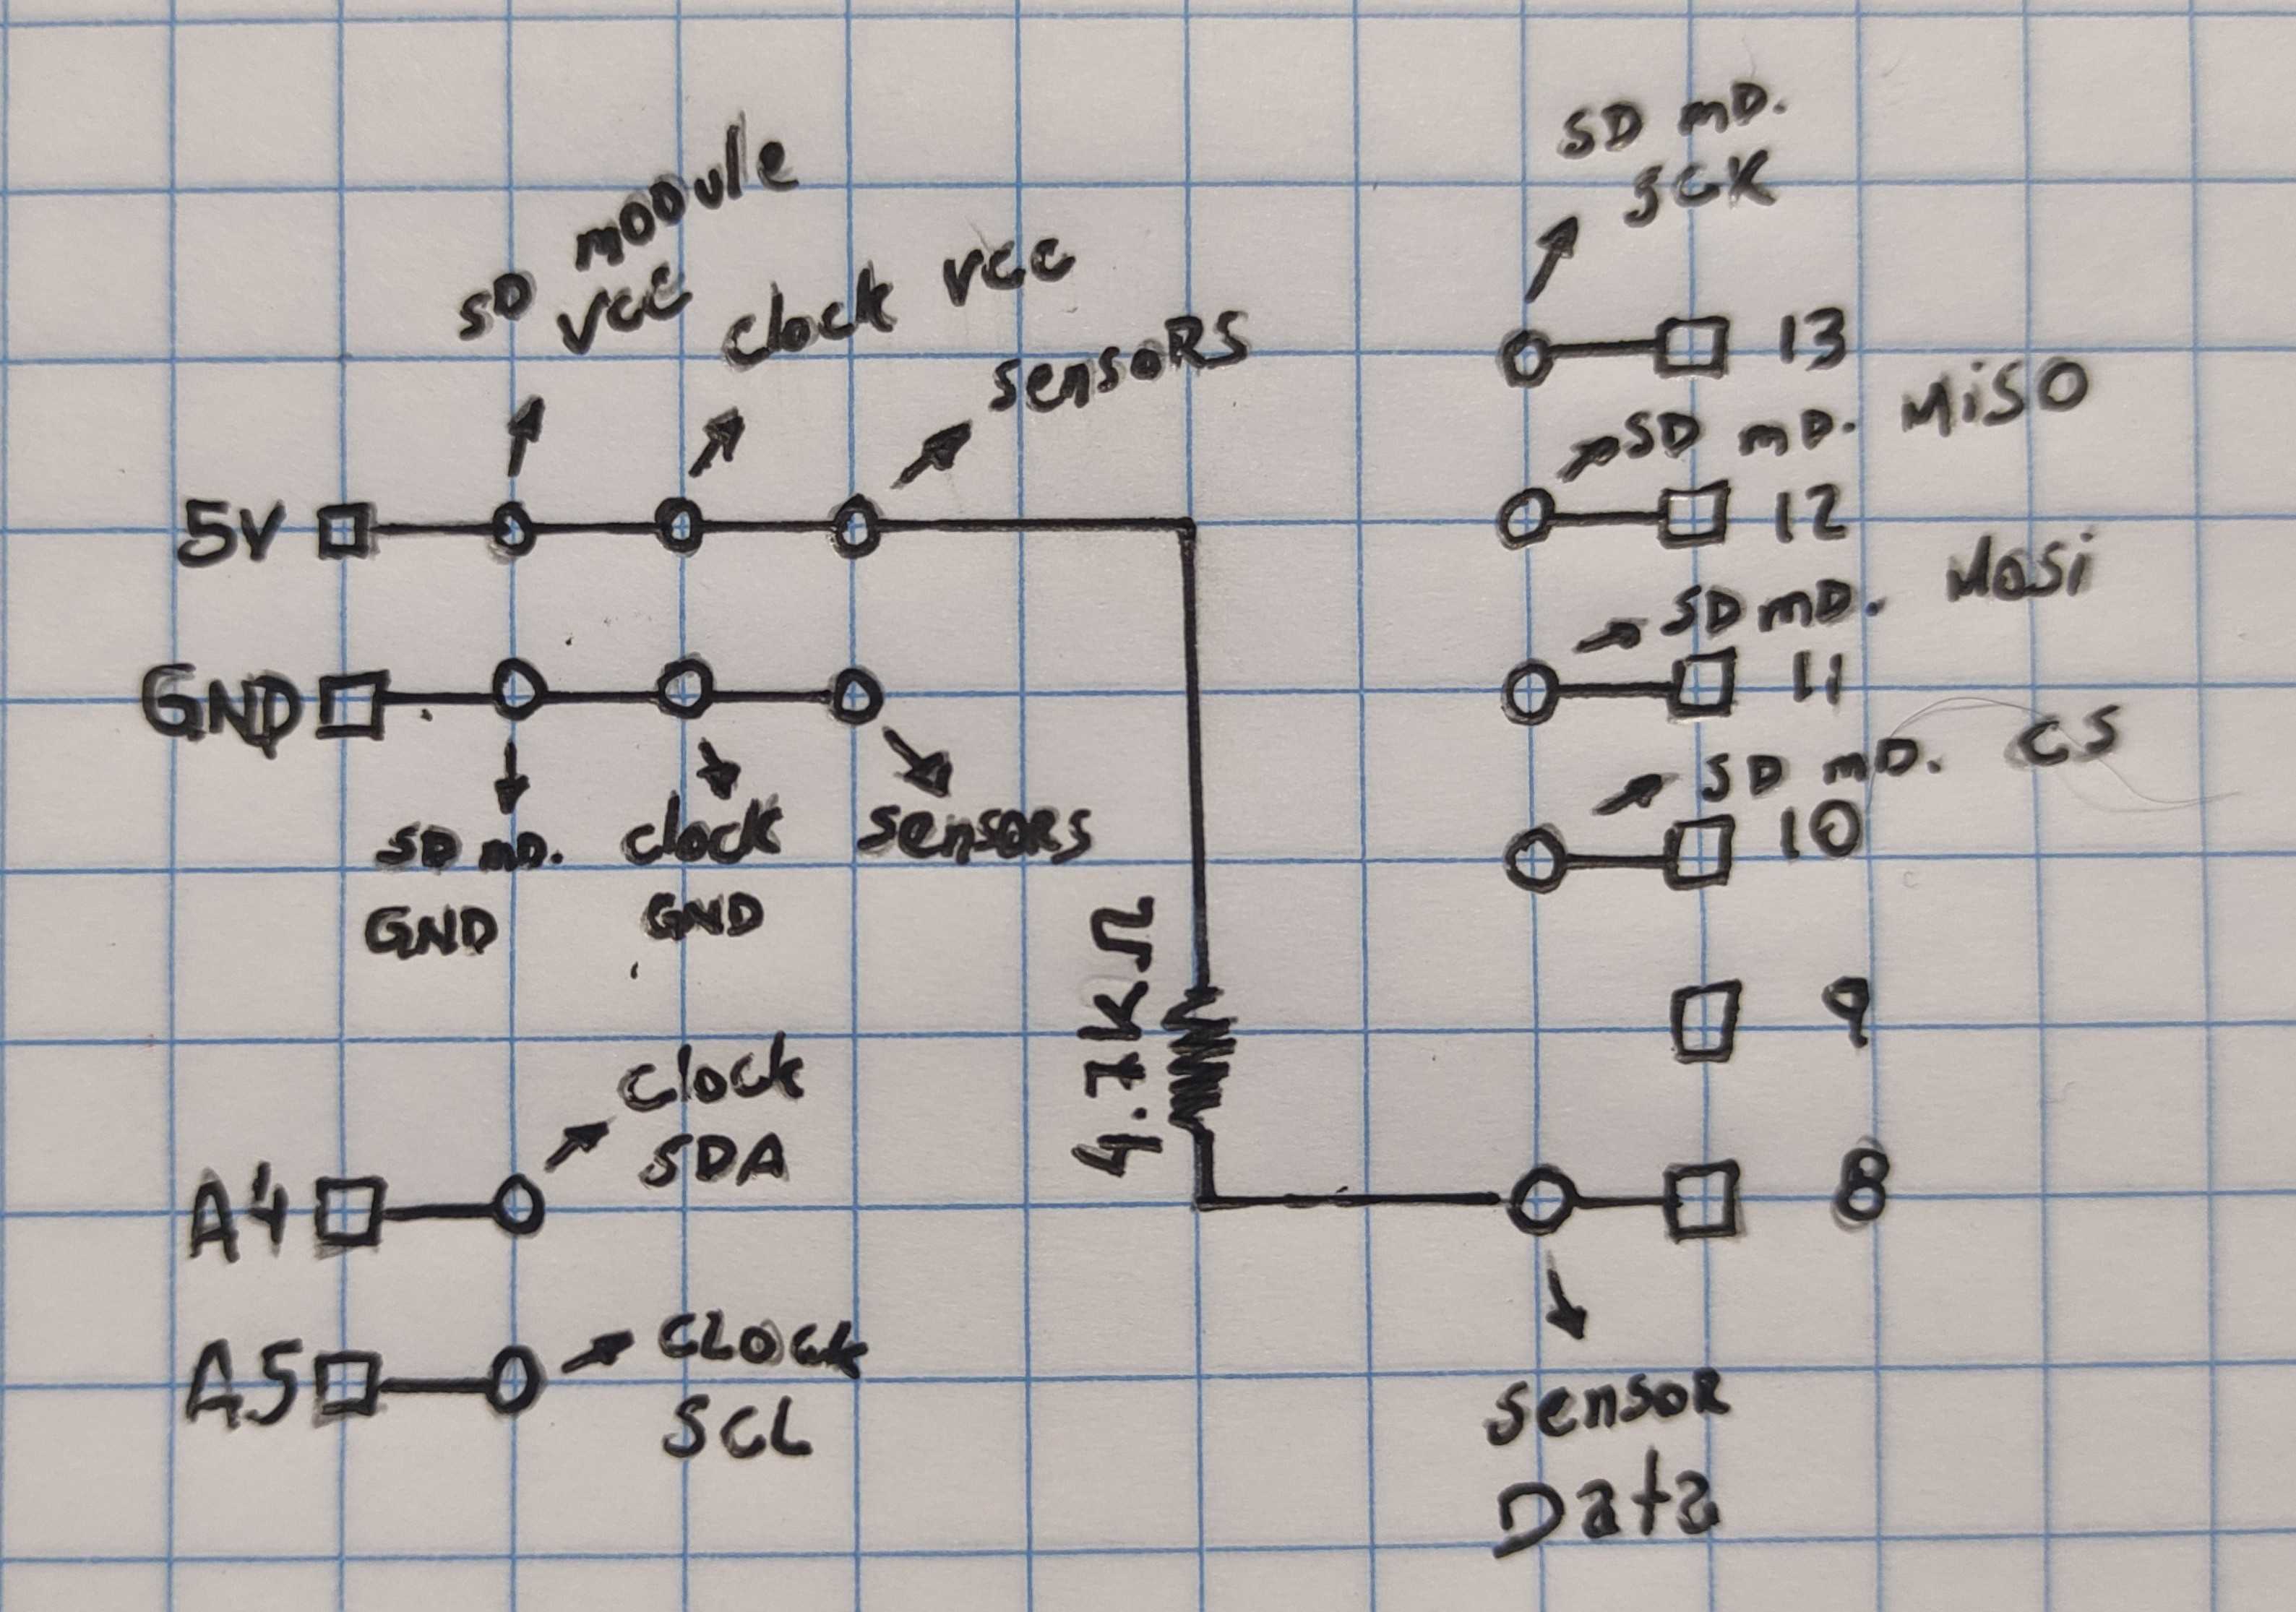 SD module
VCC
clock VCC
sensoRS
5V
GND
SD mD.
GND
clock
GND
sensoRS
4.7KΩ
clock
SDA
A4
A5
CLock
SCL
SD mD.
SCK
13
SD mD. MiSO
12
SD mD. MOSi
11
SD mD. CS
10
9
8
sensoR
Data